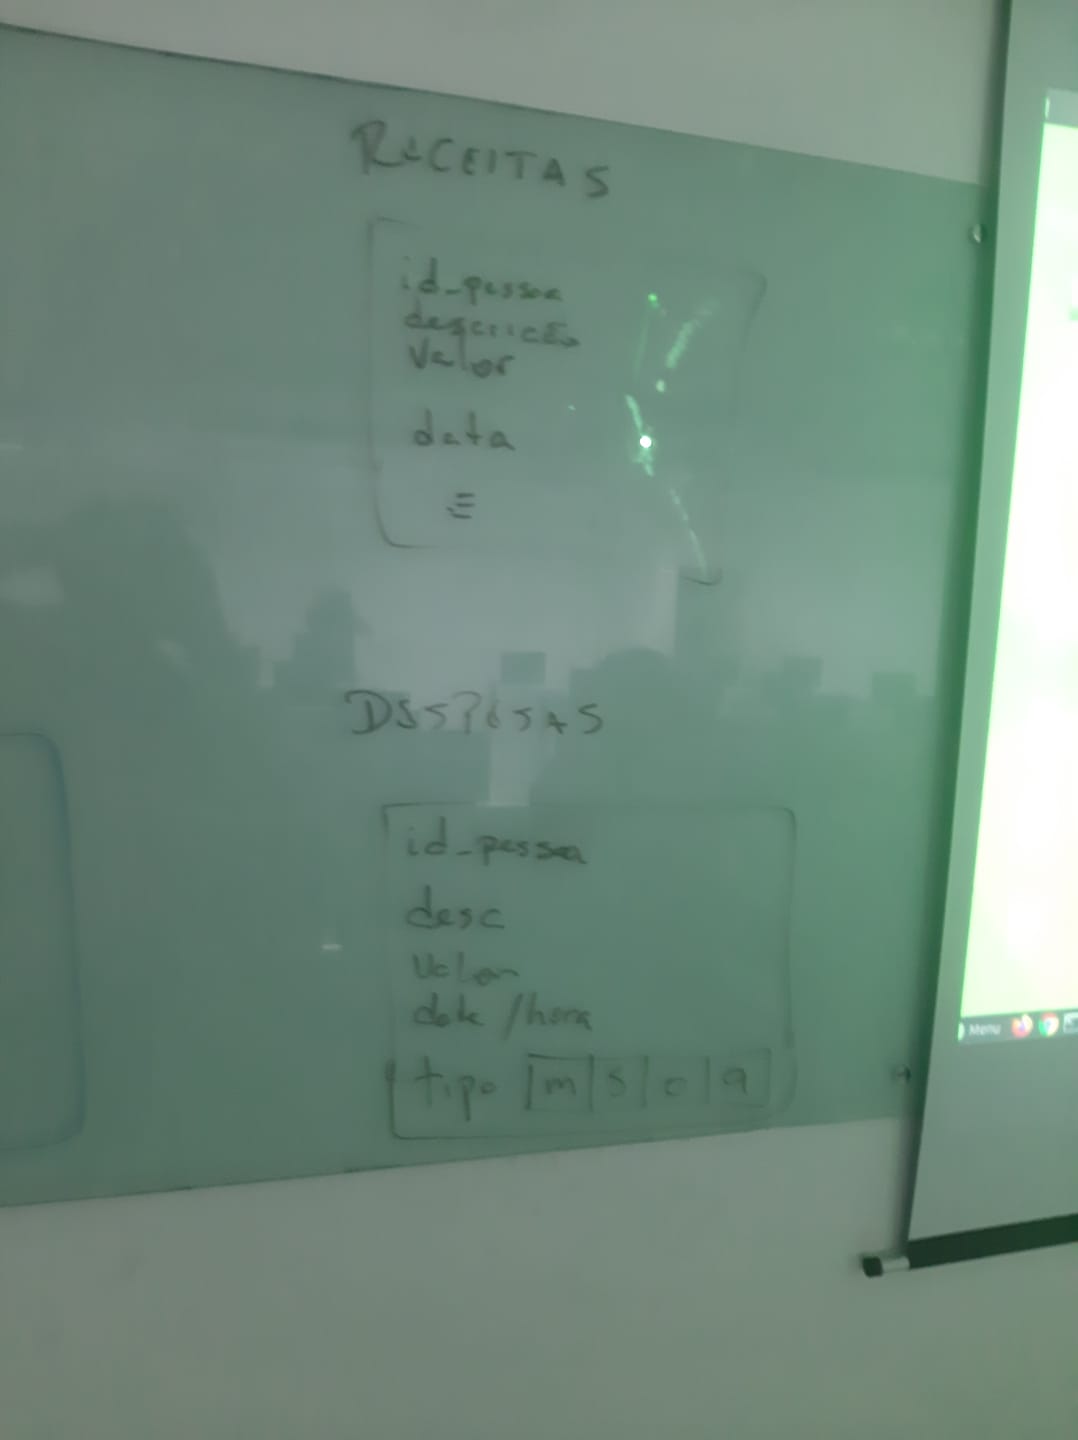 RECEITAS
id_pessoa
descrição
Valor
data
DESPESAS
id_pessoa
desc
valor
data/hora
tipo |m|s|c|a|
Menu